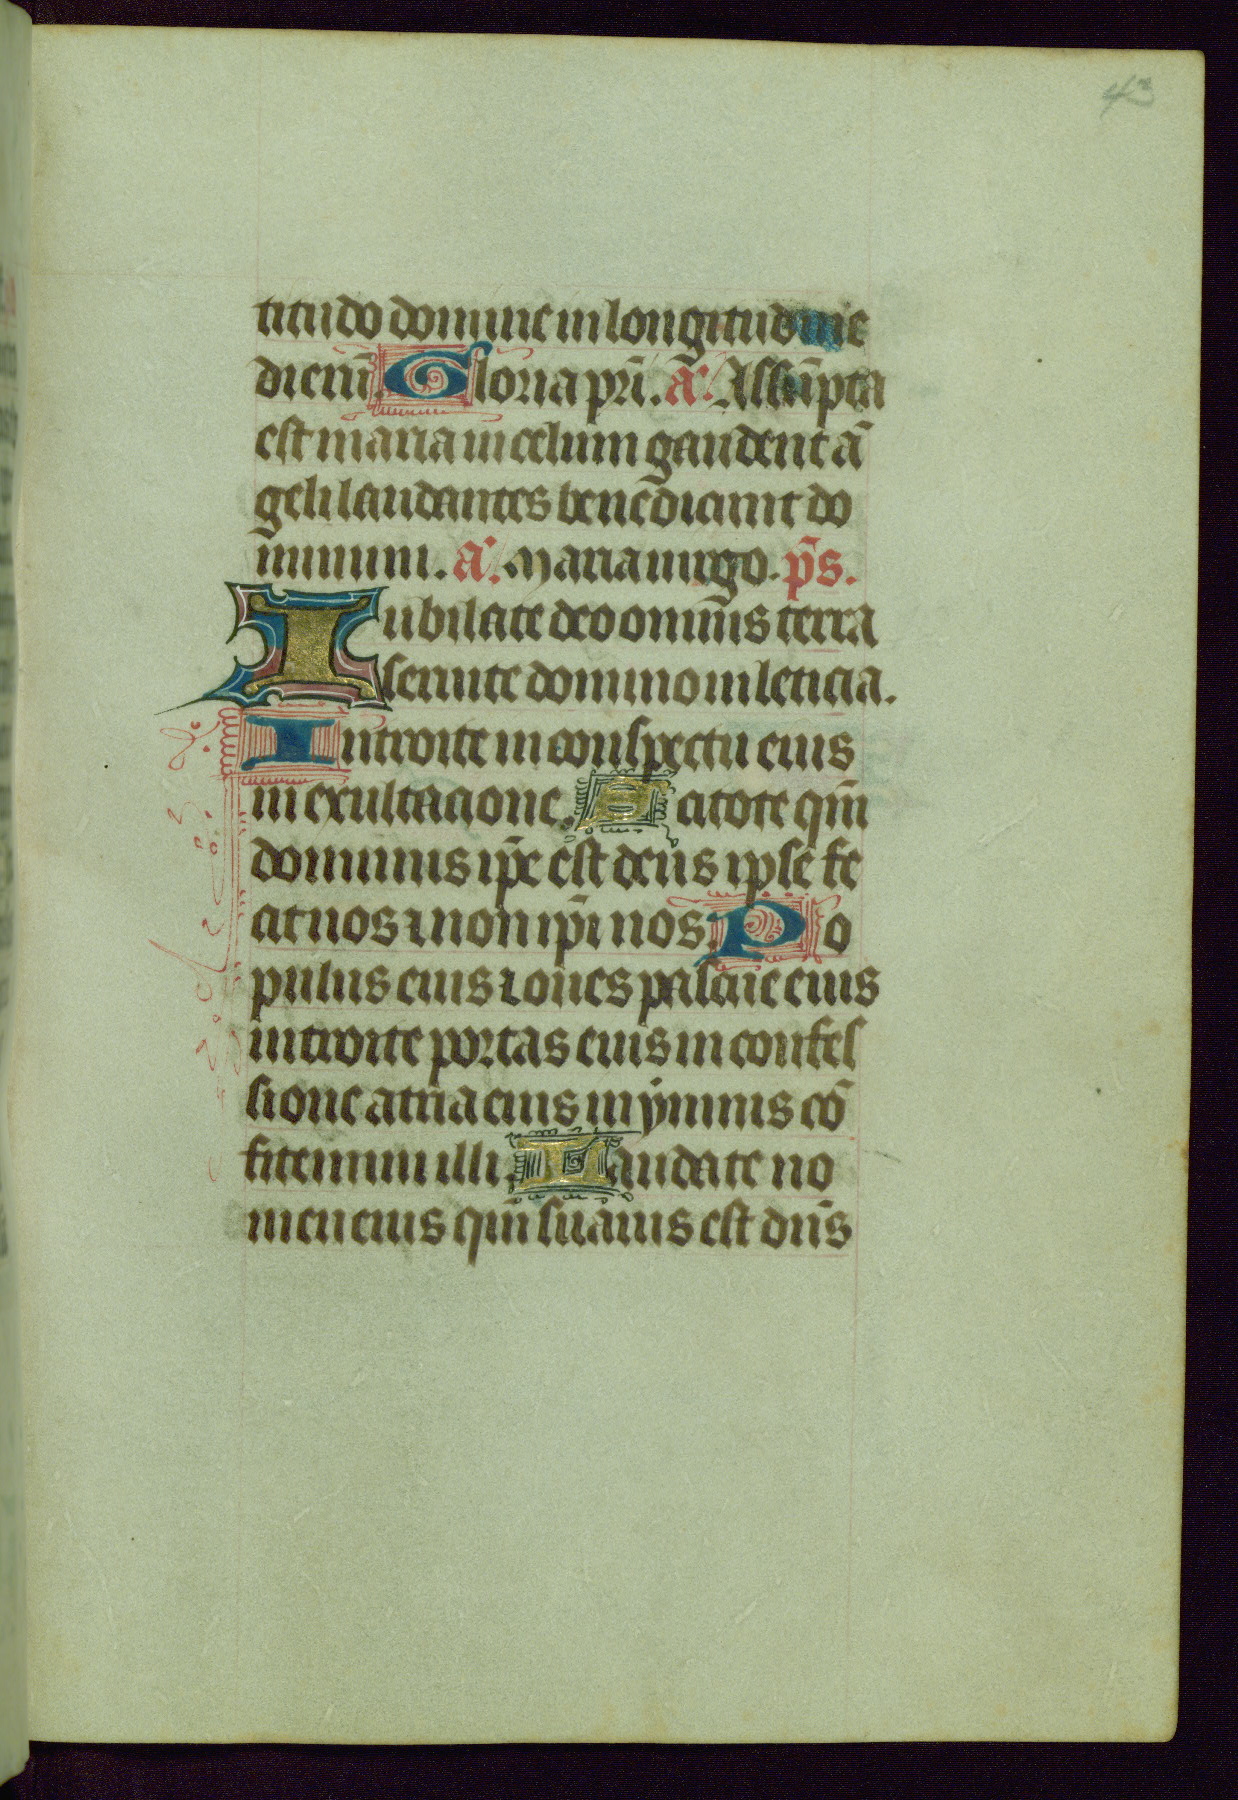 43
titudo domine in longitudinie
dierū. Gloria pri. aᷓ. Assūpta
est maria in celum gaudent ā
geli laudantes benedicunt do
minum. aᷓ. Maria uirgo. p̄s.
Iubilate deo omnīs terra
seruite domino in leticia.
Introite in conspectu eius
in exultacione. Scitote qm̄
dominus ip̄e est deus ipse fe
cit nos ⁊ non ip̄i nos. Po
pulus eius ⁊ oues pascue eius
introite portas eius in confes
sione atria eius in ẏmnis cō
fitemini illi. Laudate no
men eius qm̄ suauis est dn̄s